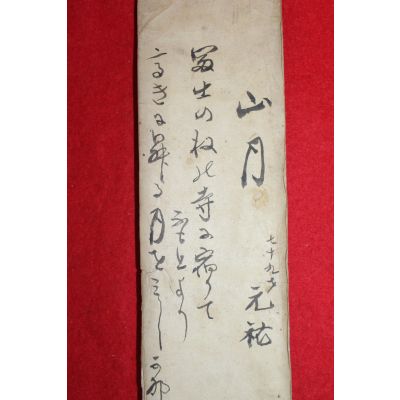 山月
七十九才 元祐
冨士の根の寺に宿りて
ふもとより
高きに昇る月をみし可那